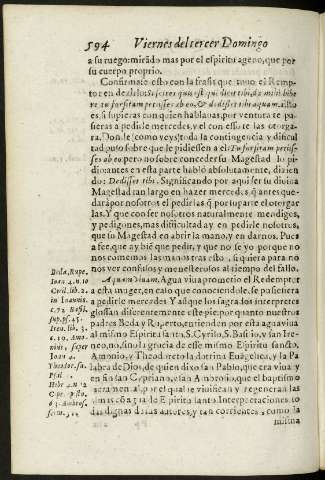 594 Viernes del tercer Domingo
a su ruego: mirãdo mas por el espiritu ageno, que por
su cuerpo proprio.
Confirmase esto con la frasis que tuuo el Remptor
en dezirlo: Si scires quis est qui dicit tibi, da mihi bibere
tu forsitam petisses ab eo, & dedisset tibi aquam.
es, si supieras con quien hablauas, por ventura te pusieras
a pedirle mercedes, y el con essote las otorgara.
Donde (como veys) toda la contingencia, y dificultad
puso sobre que le pidiessen a el: Tu forsitam petisses
ab eo: pero no sobre conceder su Magestad lo pidio:
antes en esta parte habló absolutamente, diziendo:
Dedisset tibi. Significando por aqui ser su diuina
Magestad tan largo en hazer mercedes, q̃ antes quedará
por nosotros el pedirlas q̃ por su parte el otorgarlas.
Y que con ser nosotros naturalmente mendigos,
y pedigones, mas dificultad ay en pedirle nosotros,
que su Magestad en abrir la mano, y en darnos. Pues
a fer, que ay biẽ que pedir, y que no se yo porque no
nos comemos las manos tras esto, siquiera para no
nos ver confusos y menesterosos al tiempo del fallo.
Aquam viuam. Agua viua prometio el Redemptor
a esta muger, en caso que conociendole, se pusiera
a pedirle mercedes. Y assi que los sagrados interpretes
glossan diferentemente este pie, por quanto nuestros
padres Beda y Ruperto, entienden por esta agua viua
al mismo Espiritu santo, S. Cyrilo, S. Basilio, y san Ireneo,
no, sino la gracia de esse mismo Espiritu sancto,
Amonio, y Theodoreto la dotrina Euãgelica, y la Palabra
de Dios, de quien dixo san Pablo, que era viua y
en fin san Cypriano, e san Ambrosio, que el baptismo
sacramental, por el qual se viuifican y regeneran las
almas cõ agua de Espiritu santo. Interpretaciones todas
dignas destos autores, y tan corrientes, como la
misma
Beda, Rupe.
Ioan 4. n. 10
Ciril. lib. 2.
in Ioannis,
c. 72 Basil.
sup. ps. 45.
Iren. lib. 3.
c. 10. Amonius,
super
Ioan 4.
Theodor. su.
Psal.
Heb. 4. n. 12
Cipr. epist.
63. Ambros.
serm.